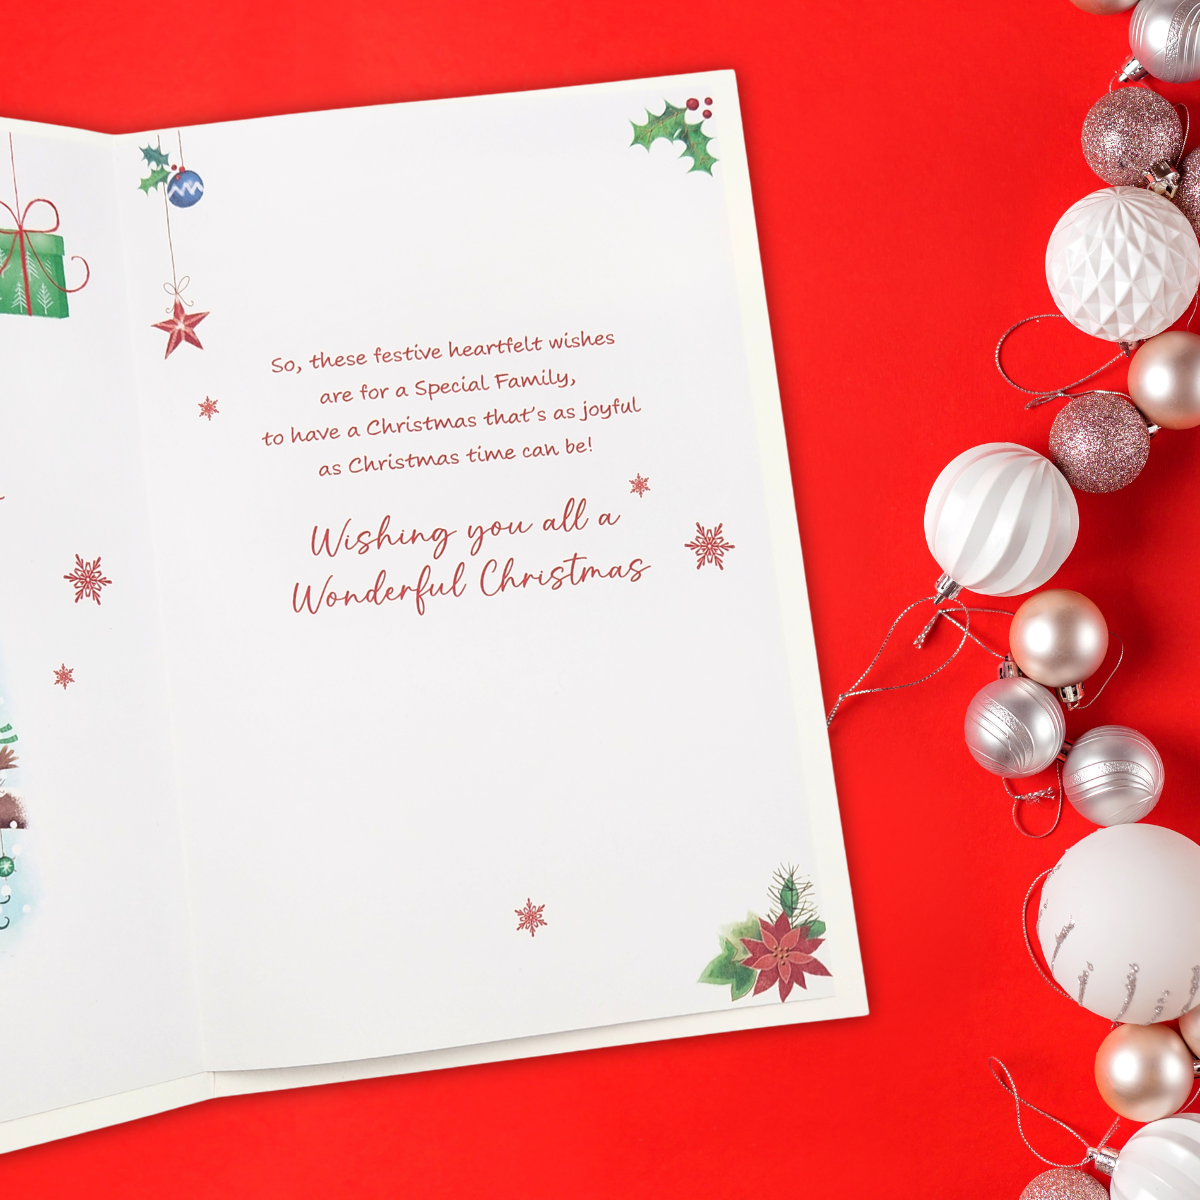 So, these festive heartfelt wishes
are for a Special Family,
to have a Christmas that's as joyful
as Christmas time can be!
Wishing you all a
Wonderful Christmas